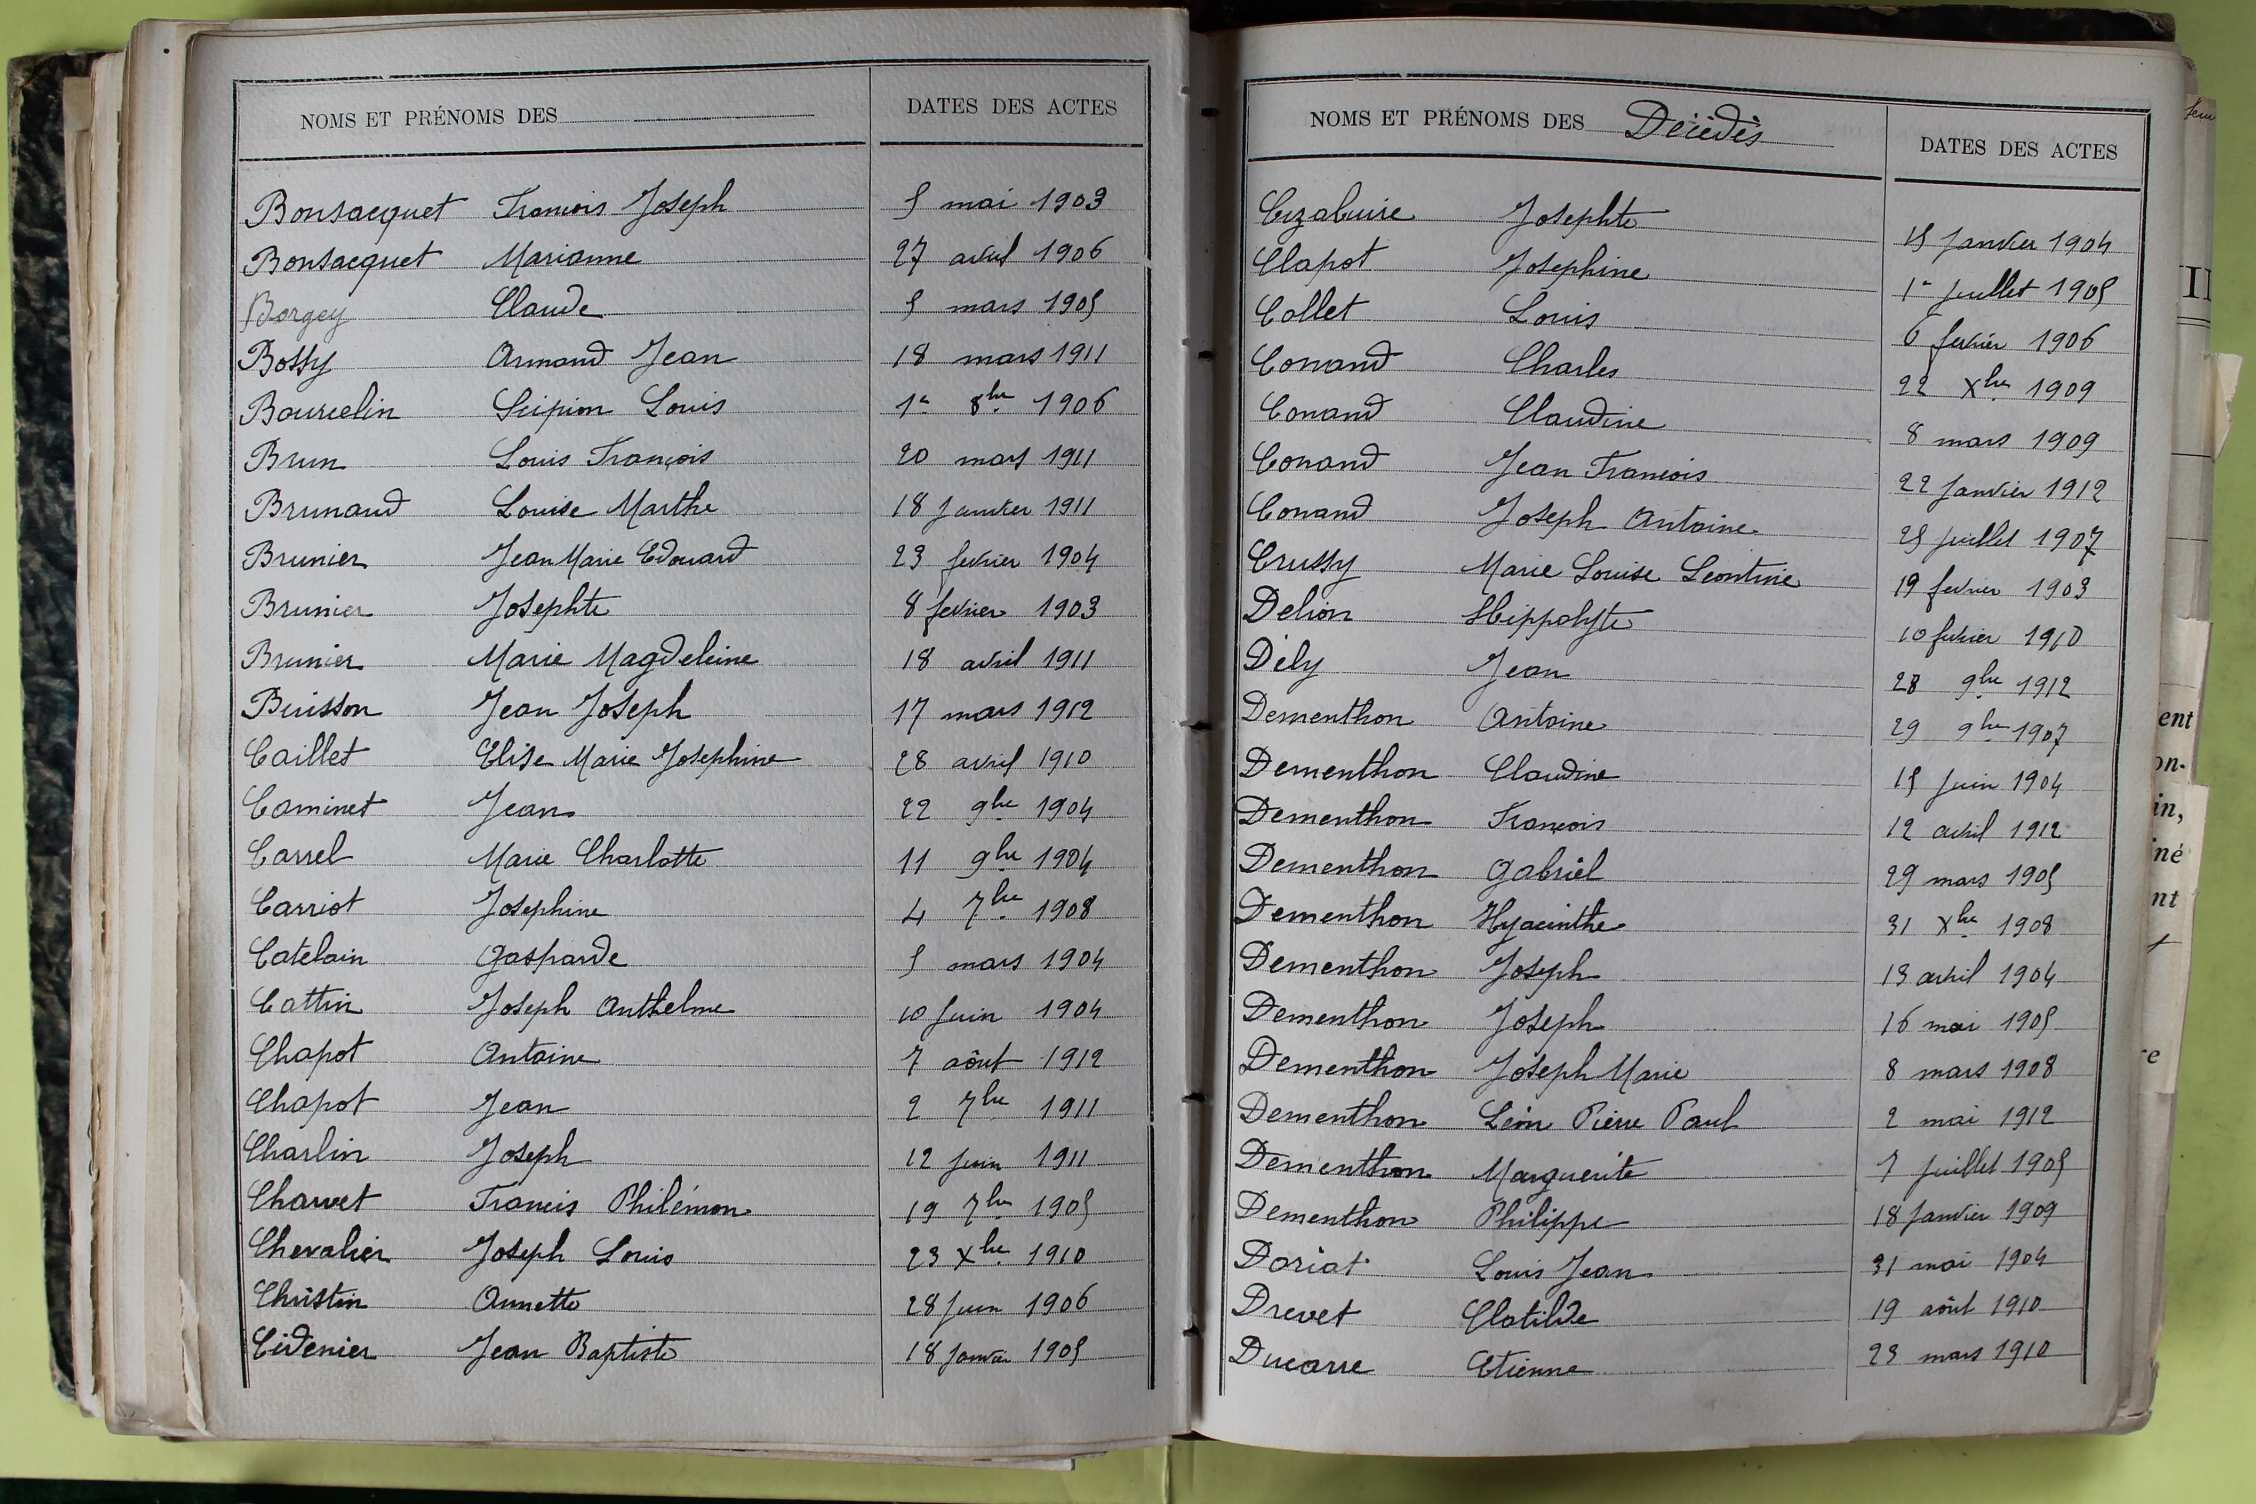 NOMS ET PRÉNOMS DES DATES DES ACTES
Bonsacquet François Joseph 5 mai 1903
Bonsacquet Marianne 27 avril 1906
Borgey Claude 5 mars 1905
Bossy Armand Jean 18 mars 1911
Bourcelin Scipion Louis 1er 8bre 1906
Brun Louis François 20 mars 1911
Brunand Louise Marthe 18 Janvier 1911
Brunier Jean Marie Edouard 23 fevrier 1904
Brunier Josephte 8 fevrier 1903
Brunier Marie Magdeleine 18 avril 1911
Buisson Jean Joseph 17 mars 1912
Caillet Elise Marie Josephine 28 avril 1910
Caminet Jean 22 9bre 1904
Carrel Marie Charlotte 11 9bre 1904
Carriot Josephine 4 7bre 1908
Catelain Gasparde 5 mars 1904
Cattin Joseph Anthelme 10 Juin 1904
Chapot Antoine 7 aôut 1912
Chapot Jean 2 7bre 1911
Charlin Joseph 12 Juin 1911
Charvet Francis Philémon 19 7bre 1905
Chevalier Joseph Louis 23 Xbre 1910
Christin Annette 28 Juin 1906
Cidenier Jean Baptiste 18 Janvier 1905
NOMS ET PRÉNOMS DES Décédés DATES DES ACTES
Cizabuire Josephte 15 Janvier 1904
Clapot Josephine 1er Juillet 1905
Collet Louis 6 fevrier 1906
Conand Charles 22 Xbre 1909
Conand Claudine 8 mars 1909
Conand Jean François 22 Janvier 1912
Conand Joseph Antoine 25 Juillet 1907
Crussy Marie Louise Leontine 19 fevrier 1903
Delion Hippolyte 10 fevrier 1910
Dély Jean 28 9bre 1912
Dementhon Antoine 29 9bre 1907
Dementhon Claudine 15 Juin 1904
Dementhon François 12 avril 1912
Dementhon Gabriel 29 mars 1905
Dementhon Hyacinthe 31 Xbre 1908
Dementhon Joseph 13 avril 1904
Dementhon Joseph 16 mai 1905
Dementhon Joseph Marie 8 mars 1908
Dementhon Léon Pierre Paul 2 mai 1912
Dementhon Marguerite 7 Juillet 1905
Dementhon Philippe 18 Janvier 1909
Doriat Louis Jean 31 mai 1904
Drevet Clotilde 19 aôut 1910
Ducarre Etienne 23 mars 1910
ent
on-
in,
né
nt
re